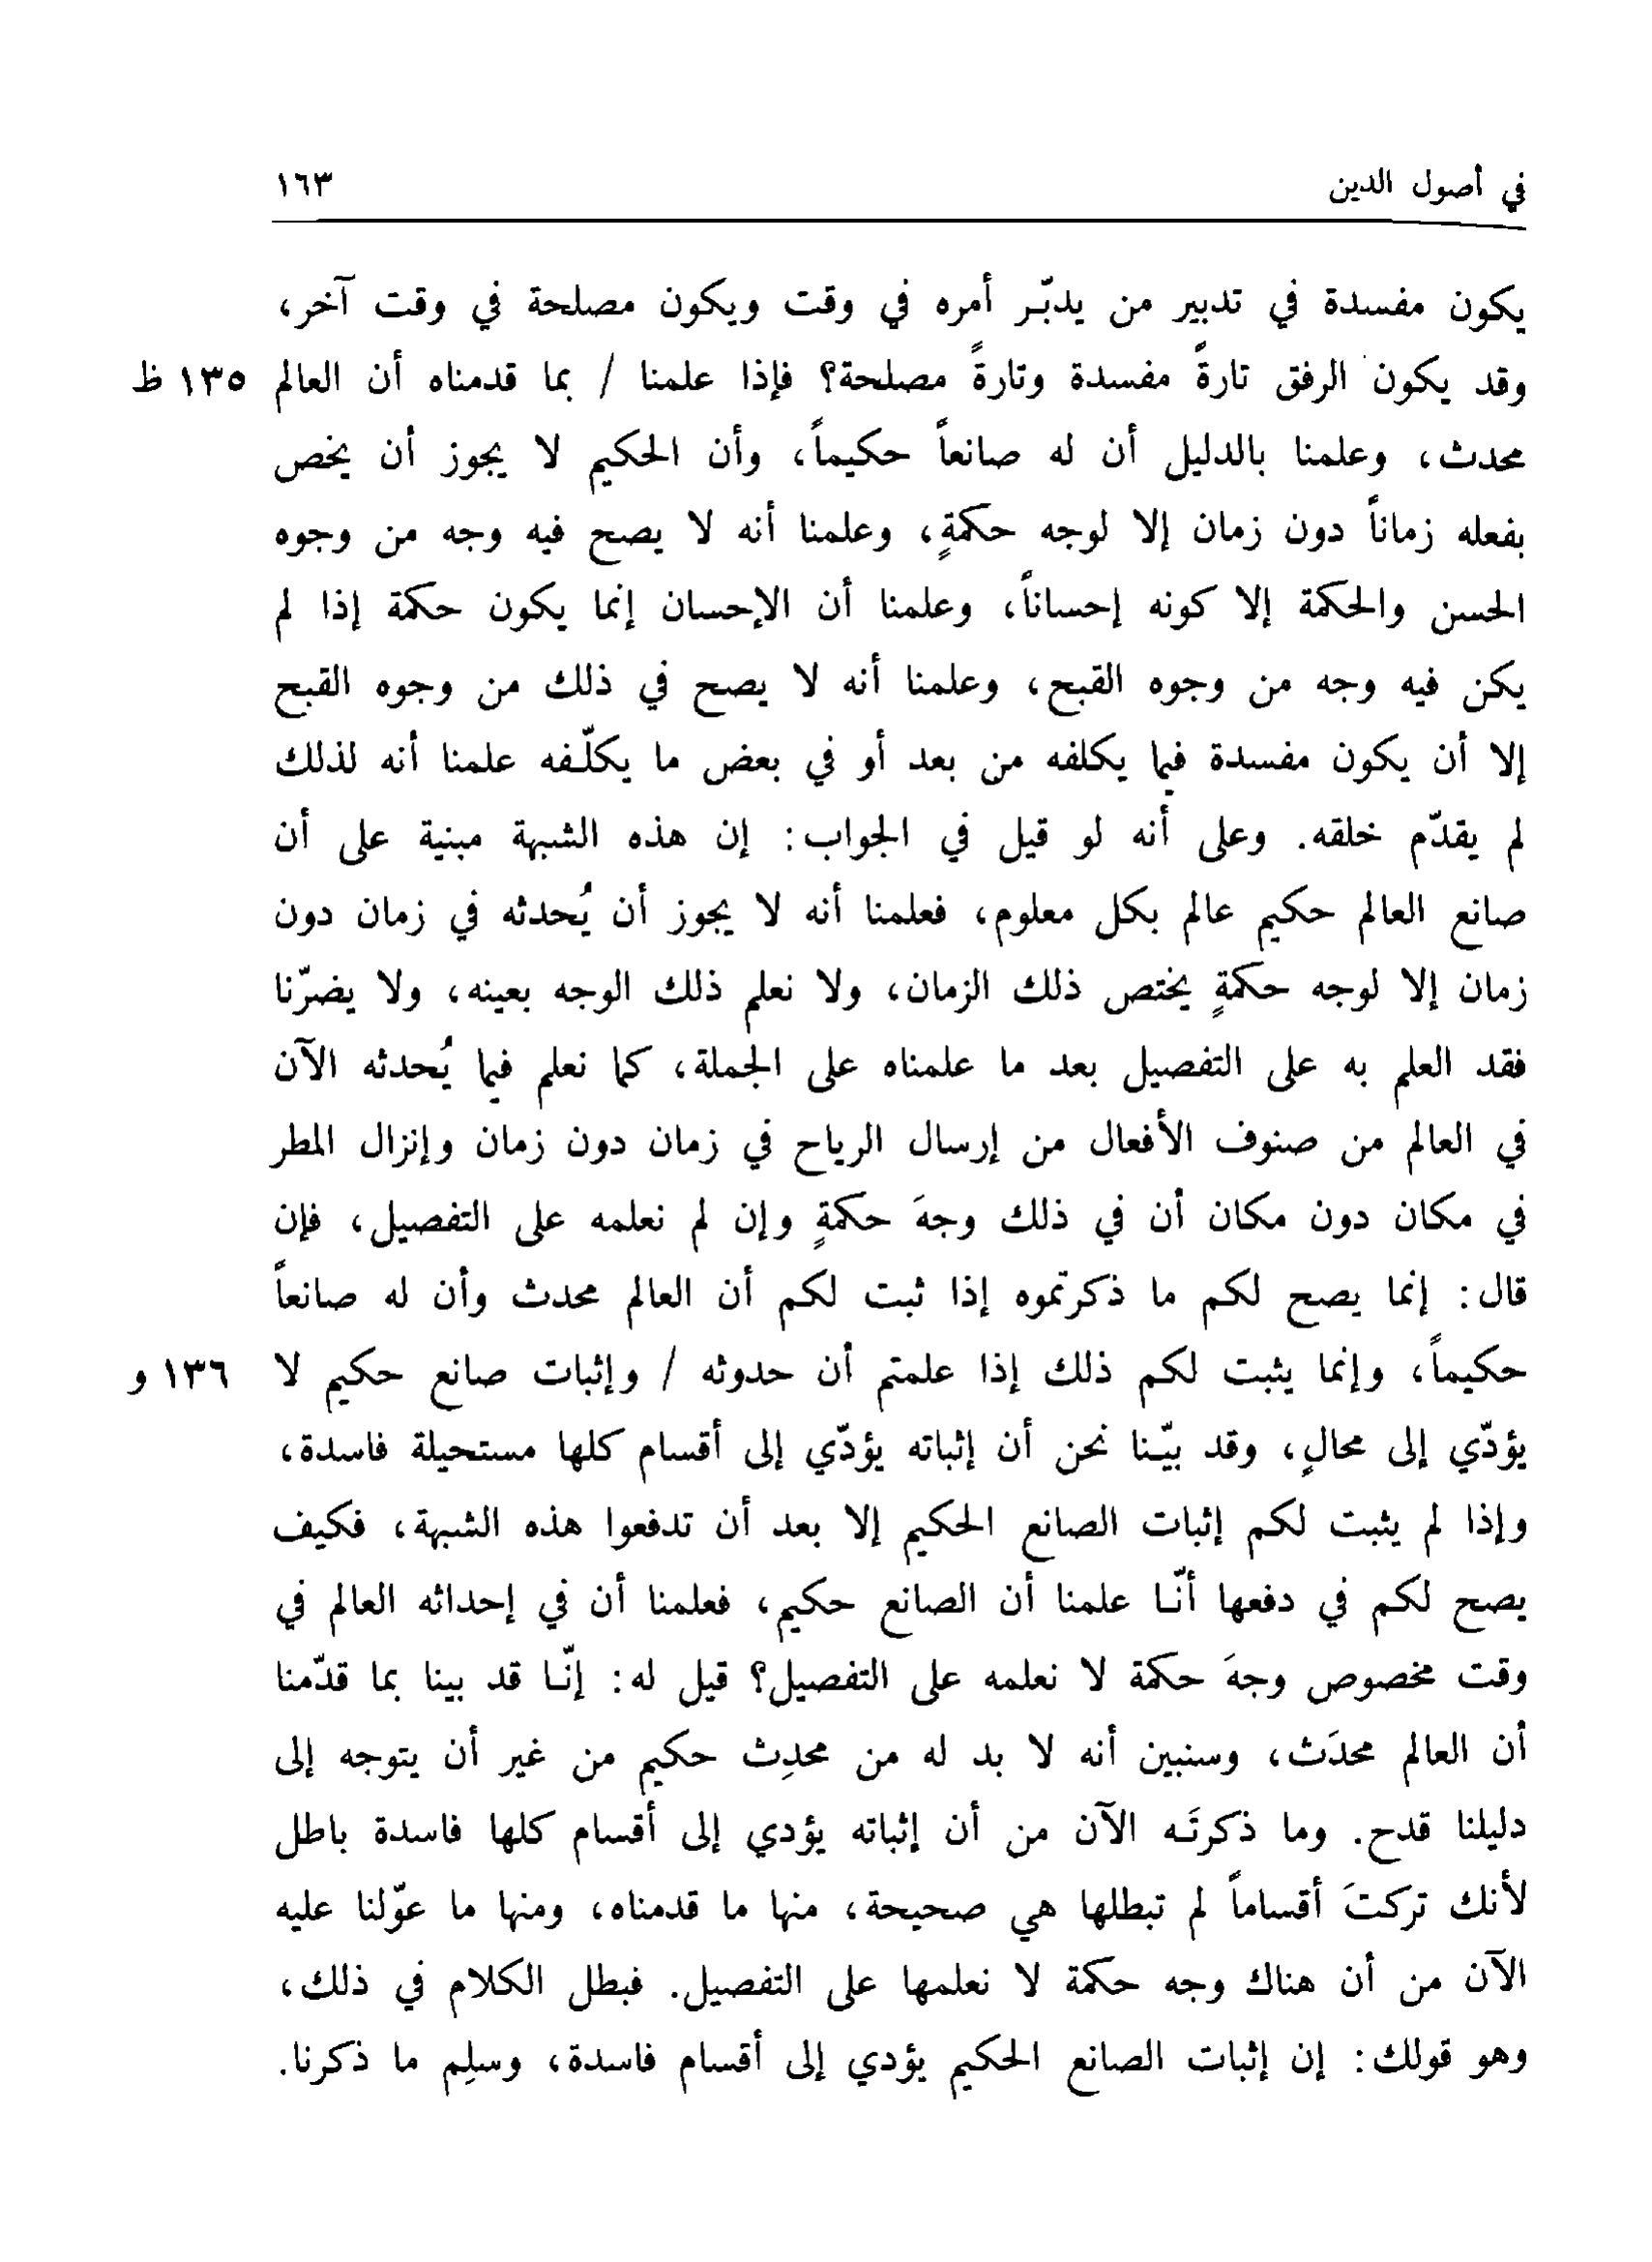 في أصول الدين ١٦٣
يكون مفسدة في تدبير من يدبّر أمره في وقت ويكون مصلحة في وقت آخر،
وقد يكون الرفق تارةً مفسدة وتارةً مصلحة؟ فإذا علمنا / بما قدمناه أن العالم ١٣٥ ظ
محدث، وعلمنا بالدليل أن له صانعاً حكيماً، وأن الحكيم لا يجوز أن يخص
بفعله زماناً دون زمان إلا لوجه حكمةٍ، وعلمنا أنه لا يصح فيه وجه من وجوه
الحسن والحكمة إلا كونه إحساناً، وعلمنا أن الإحسان إنما يكون حكمة إذا لم
يكن فيه وجه من وجوه القبح، وعلمنا أنه لا يصح في ذلك من وجوه القبح
إلا أن يكون مفسدة فيما يكلفه من بعد أو في بعض ما يكلّفه علمنا أنه لذلك
لم يقدّم خلقه. وعلى أنه لو قيل في الجواب: إن هذه الشبهة مبنية على أن
صانع العالم حكيم عالم بكل معلوم، فعلمنا أنه لا يجوز أن يُحدثه في زمان دون
زمان إلا لوجه حكمةٍ يختص ذلك الزمان، ولا نعلم ذلك الوجه بعينه، ولا يضرّنا
فقد العلم به على التفصيل بعد ما علمناه على الجملة، كما نعلم فيما يُحدثه الآن
في العالم من صنوف الأفعال من إرسال الرياح في زمان دون زمان وإنزال المطر
في مكان دون مكان أن في ذلك وجهَ حكمةٍ وإن لم نعلمه على التفصيل، فإن
قال: إنما يصح لكم ما ذكرتموه إذا ثبت لكم أن العالم محدث وأن له صانعاً
حكيماً، وإنما يثبت لكم ذلك إذا علمتم أن حدوثه / وإثبات صانع حكيم لا ١٣٦ و
يؤدّي إلى محالٍ، وقد بيّنا نحن أن إثباته يؤدّي إلى أقسام كلها مستحيلة فاسدة،
وإذا لم يثبت لكم إثبات الصانع الحكيم إلا بعد أن تدفعوا هذه الشبهة، فكيف
يصح لكم في دفعها أنّا علمنا أن الصانع حكيم، فعلمنا أن في إحداثه العالم في
وقت مخصوص وجهَ حكمة لا نعلمه على التفصيل؟ قيل له: إنّا قد بينا بما قدّمنا
أن العالم محدَث، وسنبين أنه لا بد له من محدِث حكيم من غير أن يتوجه إلى
دليلنا قدح. وما ذكرتَه الآن من أن إثباته يؤدي إلى أقسام كلها فاسدة باطل
لأنك تركتَ أقساماً لم تبطلها هي صحيحة، منها ما قدمناه، ومنها ما عوّلنا عليه
الآن من أن هناك وجه حكمة لا نعلمها على التفصيل. فبطل الكلام في ذلك،
وهو قولك: إن إثبات الصانع الحكيم يؤدي إلى أقسام فاسدة، وسلِم ما ذكرنا.